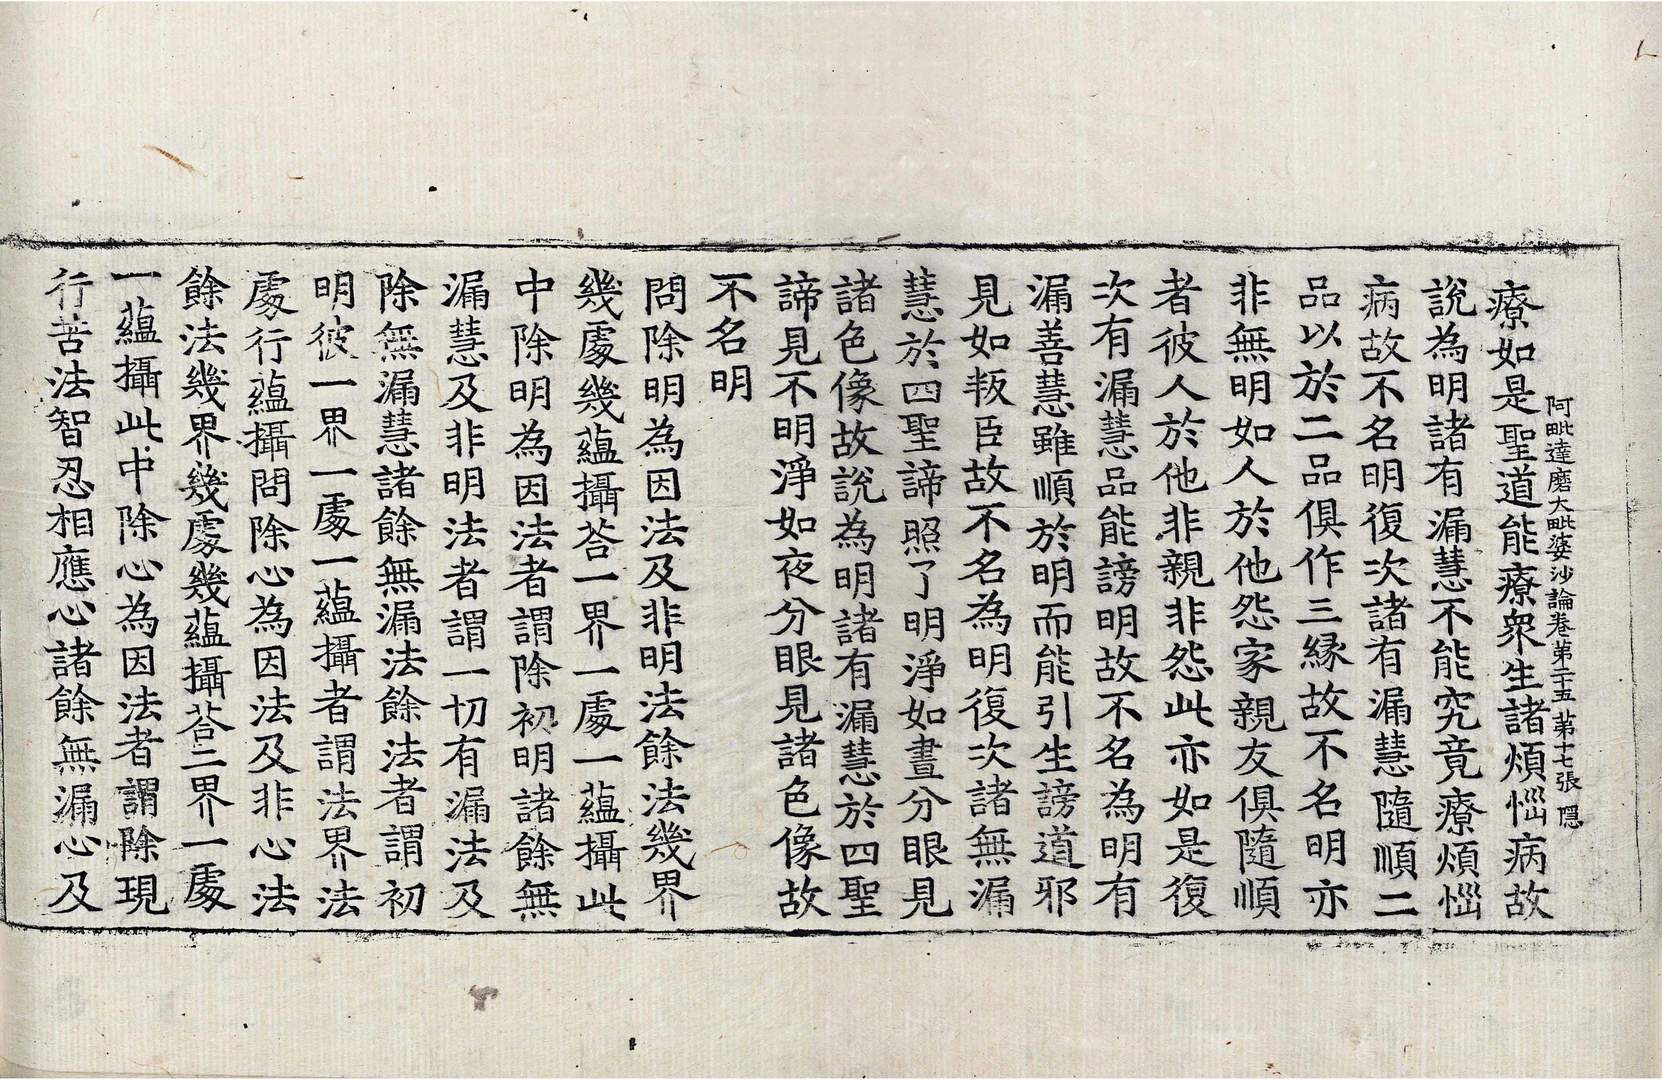 阿毗達磨大毗婆沙論卷第二十五 第十七張 隱
療如是聖道能療衆生諸煩惱病故
說為明諸有漏慧不能究竟療煩惱
病故不名明復次諸有漏慧隨順二
品以於二品俱作三縁故不名明亦
非無明如人於他怨家親友俱隨順
者彼人於他非親非怨此亦如是復
次有漏慧品能謗明故不名為明有
漏善慧雖順於明而能引生謗道邪
見如叛臣故不名為明復次諸無漏
慧於四聖諦照了明淨如晝分眼見
諸色像故說為明諸有漏慧於四聖
諦見不明淨如夜分眼見諸色像故
不名明
問除明為因法及非明法餘法幾界
幾處幾蘊攝荅一界一處一蘊攝此
中除明為因法者謂除初明諸餘無
漏慧及非明法者謂一切有漏法及
除無漏慧諸餘無漏法餘法者謂初
明彼一界一處一蘊攝者謂法界法
處行蘊攝問除心為因法及非心法
餘法幾界幾處幾蘊攝荅二界一處
一蘊攝此中除心為因法者謂除現
行苦法智忍相應心諸餘無漏心及